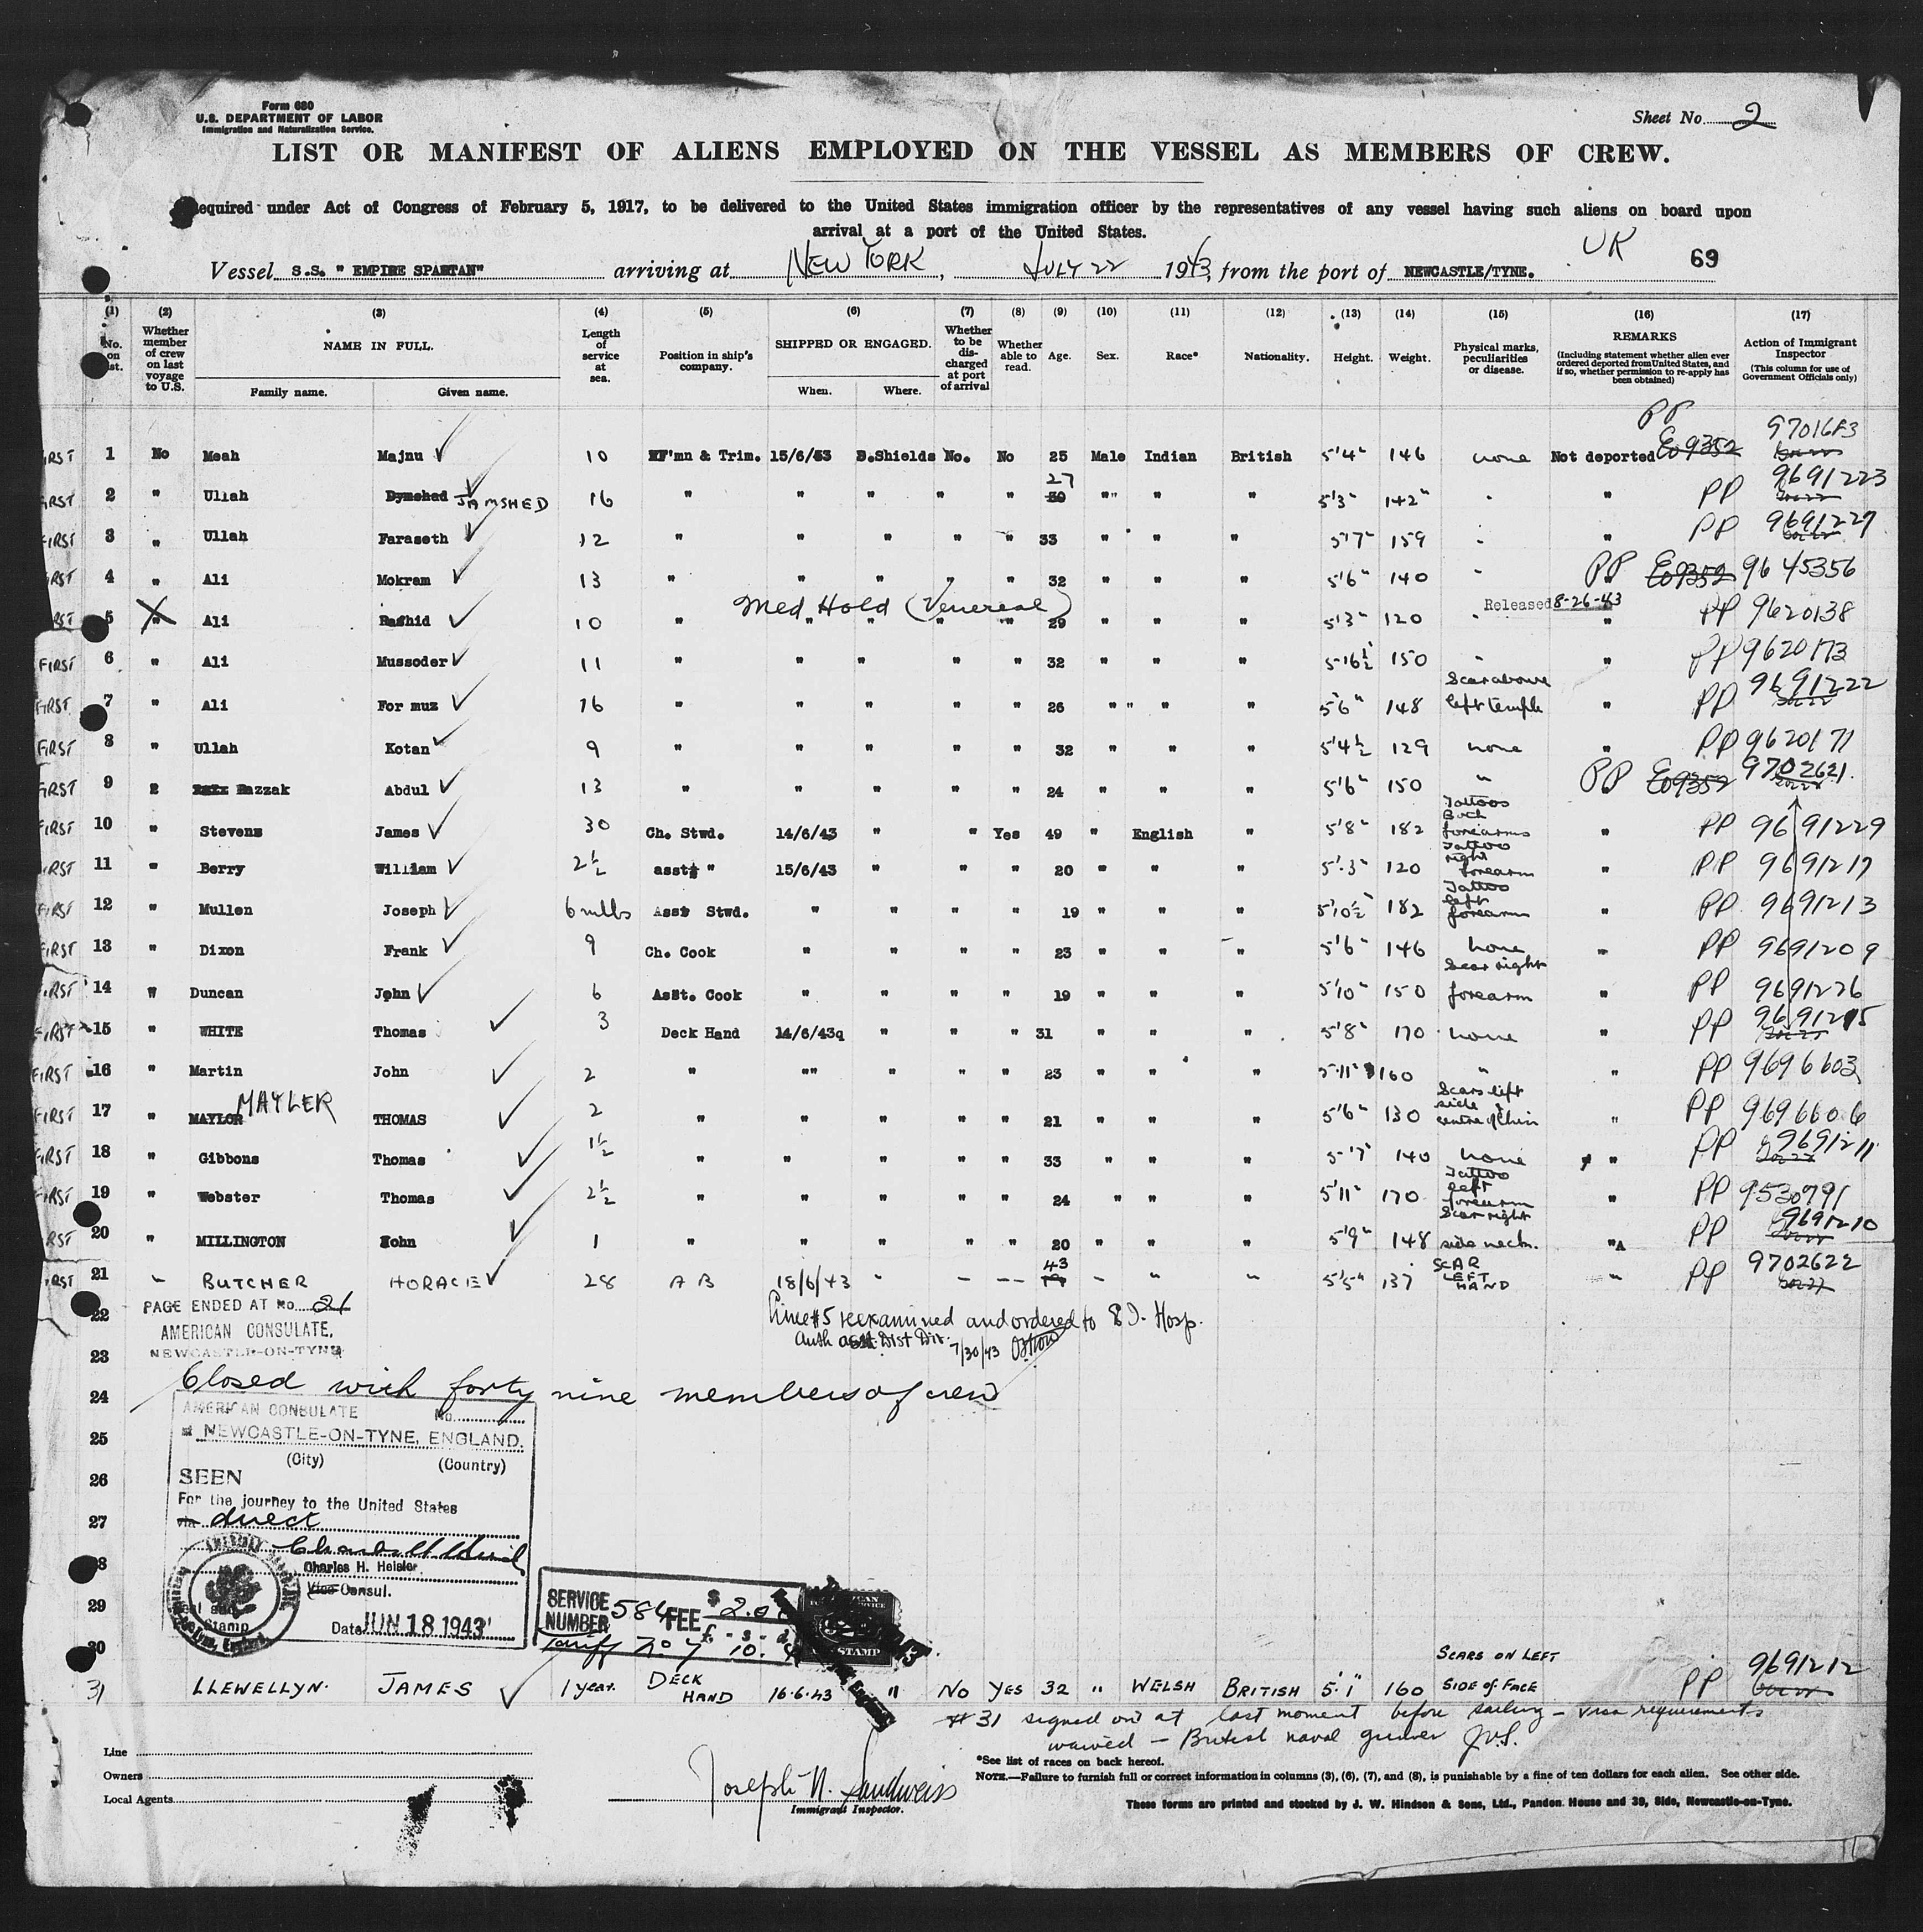 Form 680
U.S. DEPARTMENT OF LABOR
Immigration and Naturalization Service.
Sheet No. 2
LIST OR MANIFEST OF ALIENS EMPLOYED ON THE VESSEL AS MEMBERS OF CREW.
equired under Act of Congress of February 5, 1917, to be delivered to the United States immigration officer by the representatives of any vessel having such aliens on board upon
arrival at a port of the United States.
UK
Vessel S.S. " EMPIRE SPARTAN" arriving at NEW YORK, JULY 22 1943, from the port of NEWCASTLE/TYNE. 69
(1) (2) (3) (4) (5) (6) (7) (8) (9) (10) (11) (12) (13) (14) (15) (16) (17)
No. on list. Whether member of crew on last voyage to U.S. NAME IN FULL. Family name. Given name. Length of service at sea. Position in ship's company. SHIPPED OR ENGAGED. When. Where. Whether to be discharged at port of arrival Whether able to read. Age. Sex. Race* Nationality. Height. Weight. Physical marks, peculiarities or disease. REMARKS (Including statement whether alien ever ordered deported from United States, and if so, whether permission to re-apply has been obtained) Action of Immigrant Inspector (This column for use of Government Officials only)
PP
IRST 1 No Meah Majnu 10 F'mn & Trim. 15/6/43 S.Shields No. No 25 Male Indian British 5'4" 146 none Not deported E09352 9701683
FIRST 2 " Ullah Dymshed JAMSHED 16 " " " " " 30 27 "" " " 5'3" 142" " " PP 9691223
FIRST 3 " Ullah Faraseth 12 " " " " " 33 " " " 5'7" 159 " " PP 9691227
FIRST 4 " Ali Mokram 13 " " " " " 32 " " " 5'6" 140 " " PP E09352 9645356
Med Hold (Venereal) Released 8-26-43
RST 5 " Ali Rashid 10 " " " " " 29 " " " 5'3" 120 " " PP 9620138
FIRST 6 " Ali Mussoder 11 " " " " " 32 " " " 5'6½ 150 " " PP 9620173
FIRST 7 " Ali For muz 16 " " " " " 26 " " " 5'6" 148 Scar above left temple " PP 9691222
FIRST 8 " Ullah Kotan 9 " " " " " 32 " " " 5'4½ 129 none " PP 9620171
FIRST 9 " Razzak Abdul 13 " " " " " 24 " " " 5'6" 150 " PP E09352 9702621
FIRST 10 " Stevens James 30 Ch. Stwd. 14/6/43 " " Yes 49 " English " 5'8" 182 Tattoos Both forearms " PP 9691229
FIRST 11 " Berry William 2½ asst " 15/6/43 " " " 20 " " " 5'3" 120 Tattoo right forearm " PP 9691217
FIRST 12 " Mullen Joseph 6 mths Asst Stwd. " " " " 19 " " " 5'10½" 182 Tattoo left forearm " PP 9691213
FIRST 13 " Dixon Frank 9 Ch. Cook " " " " 23 " " " 5'6" 146 none " PP 9691209
FIRST 14 " Duncan John 6 Asst. Cook " " " " 19 " " " 5'10" 150 Scar right forearm " PP 9691226
FIRST 15 " WHITE Thomas 3 Deck Hand 14/6/43q " " " 31 " " " 5'8" 170 none " PP 9691215
FIRST 16 " Martin John 2 " "" " " " 23 " " " 5'11" 160 " " PP 9696603
FIRST 17 " MAYLOR MAYLER THOMAS 2 " " " " " 21 " " " 5'6" 130 Scars left side & centre of chin " PP 9696606
FIRST 18 " Gibbons Thomas 1½ " " " " " 33 " " " 5'7" 140 none " PP 9691211
FIRST 19 " Webster Thomas 2½ " " " " " 24 " " " 5'11" 170 Tattoo left forearm " PP 9530791
RST 20 " MILLINGTON John 1 " " " " " 20 " " " 5'9" 148 Scar right side neck. " PP 9691210
FIRST 21 " BUTCHER HORACE 28 A B 18/6/43 " " " 43 " " " 5'5" 137 SCAR LEFT HAND " PP 9702622
22 PAGE ENDED AT No. 21
AMERICAN CONSULATE,
NEWCASTLE-ON-TYNE
Line #5 reexamined and ordered to E.I. Hosp.
Auth asst. Dist Dir. 7/30/43
23
24 Closed with forty nine members of crew
AMERICAN CONSULATE No.
25 at NEWCASTLE-ON-TYNE, ENGLAND.
(City) (Country)
26 SEEN
For the journey to the United States
27 via direct
28 Charles H. Heisler
Vice Consul.
Seal and
Stamp
29 Date JUN 18 1943
30
SERVICE NUMBER 584 FEE $ 2.0
Tariff No. 7 £ - s - d 10.
STAMP
31 LLEWELLYN. JAMES 1 year. DECK HAND 16.6.43 " No YES 32 " WELSH BRITISH 5'1" 160 SCARS ON LEFT SIDE of FACE PP 9691212
#31 signed on at last moment before sailing - visa requirements
waived - British naval gunner
Line
Owners
Local Agents
Joseph N. Sandweiss
Immigrant Inspector.
*See list of races on back hereof.
NOTE.—Failure to furnish full or correct information in columns (3), (6), (7), and (8), is punishable by a fine of ten dollars for each alien. See other side.
These forms are printed and stocked by J. W. Hindson & Sons, Ltd., Pandon House and 39, Side, Newcastle-on-Tyne.